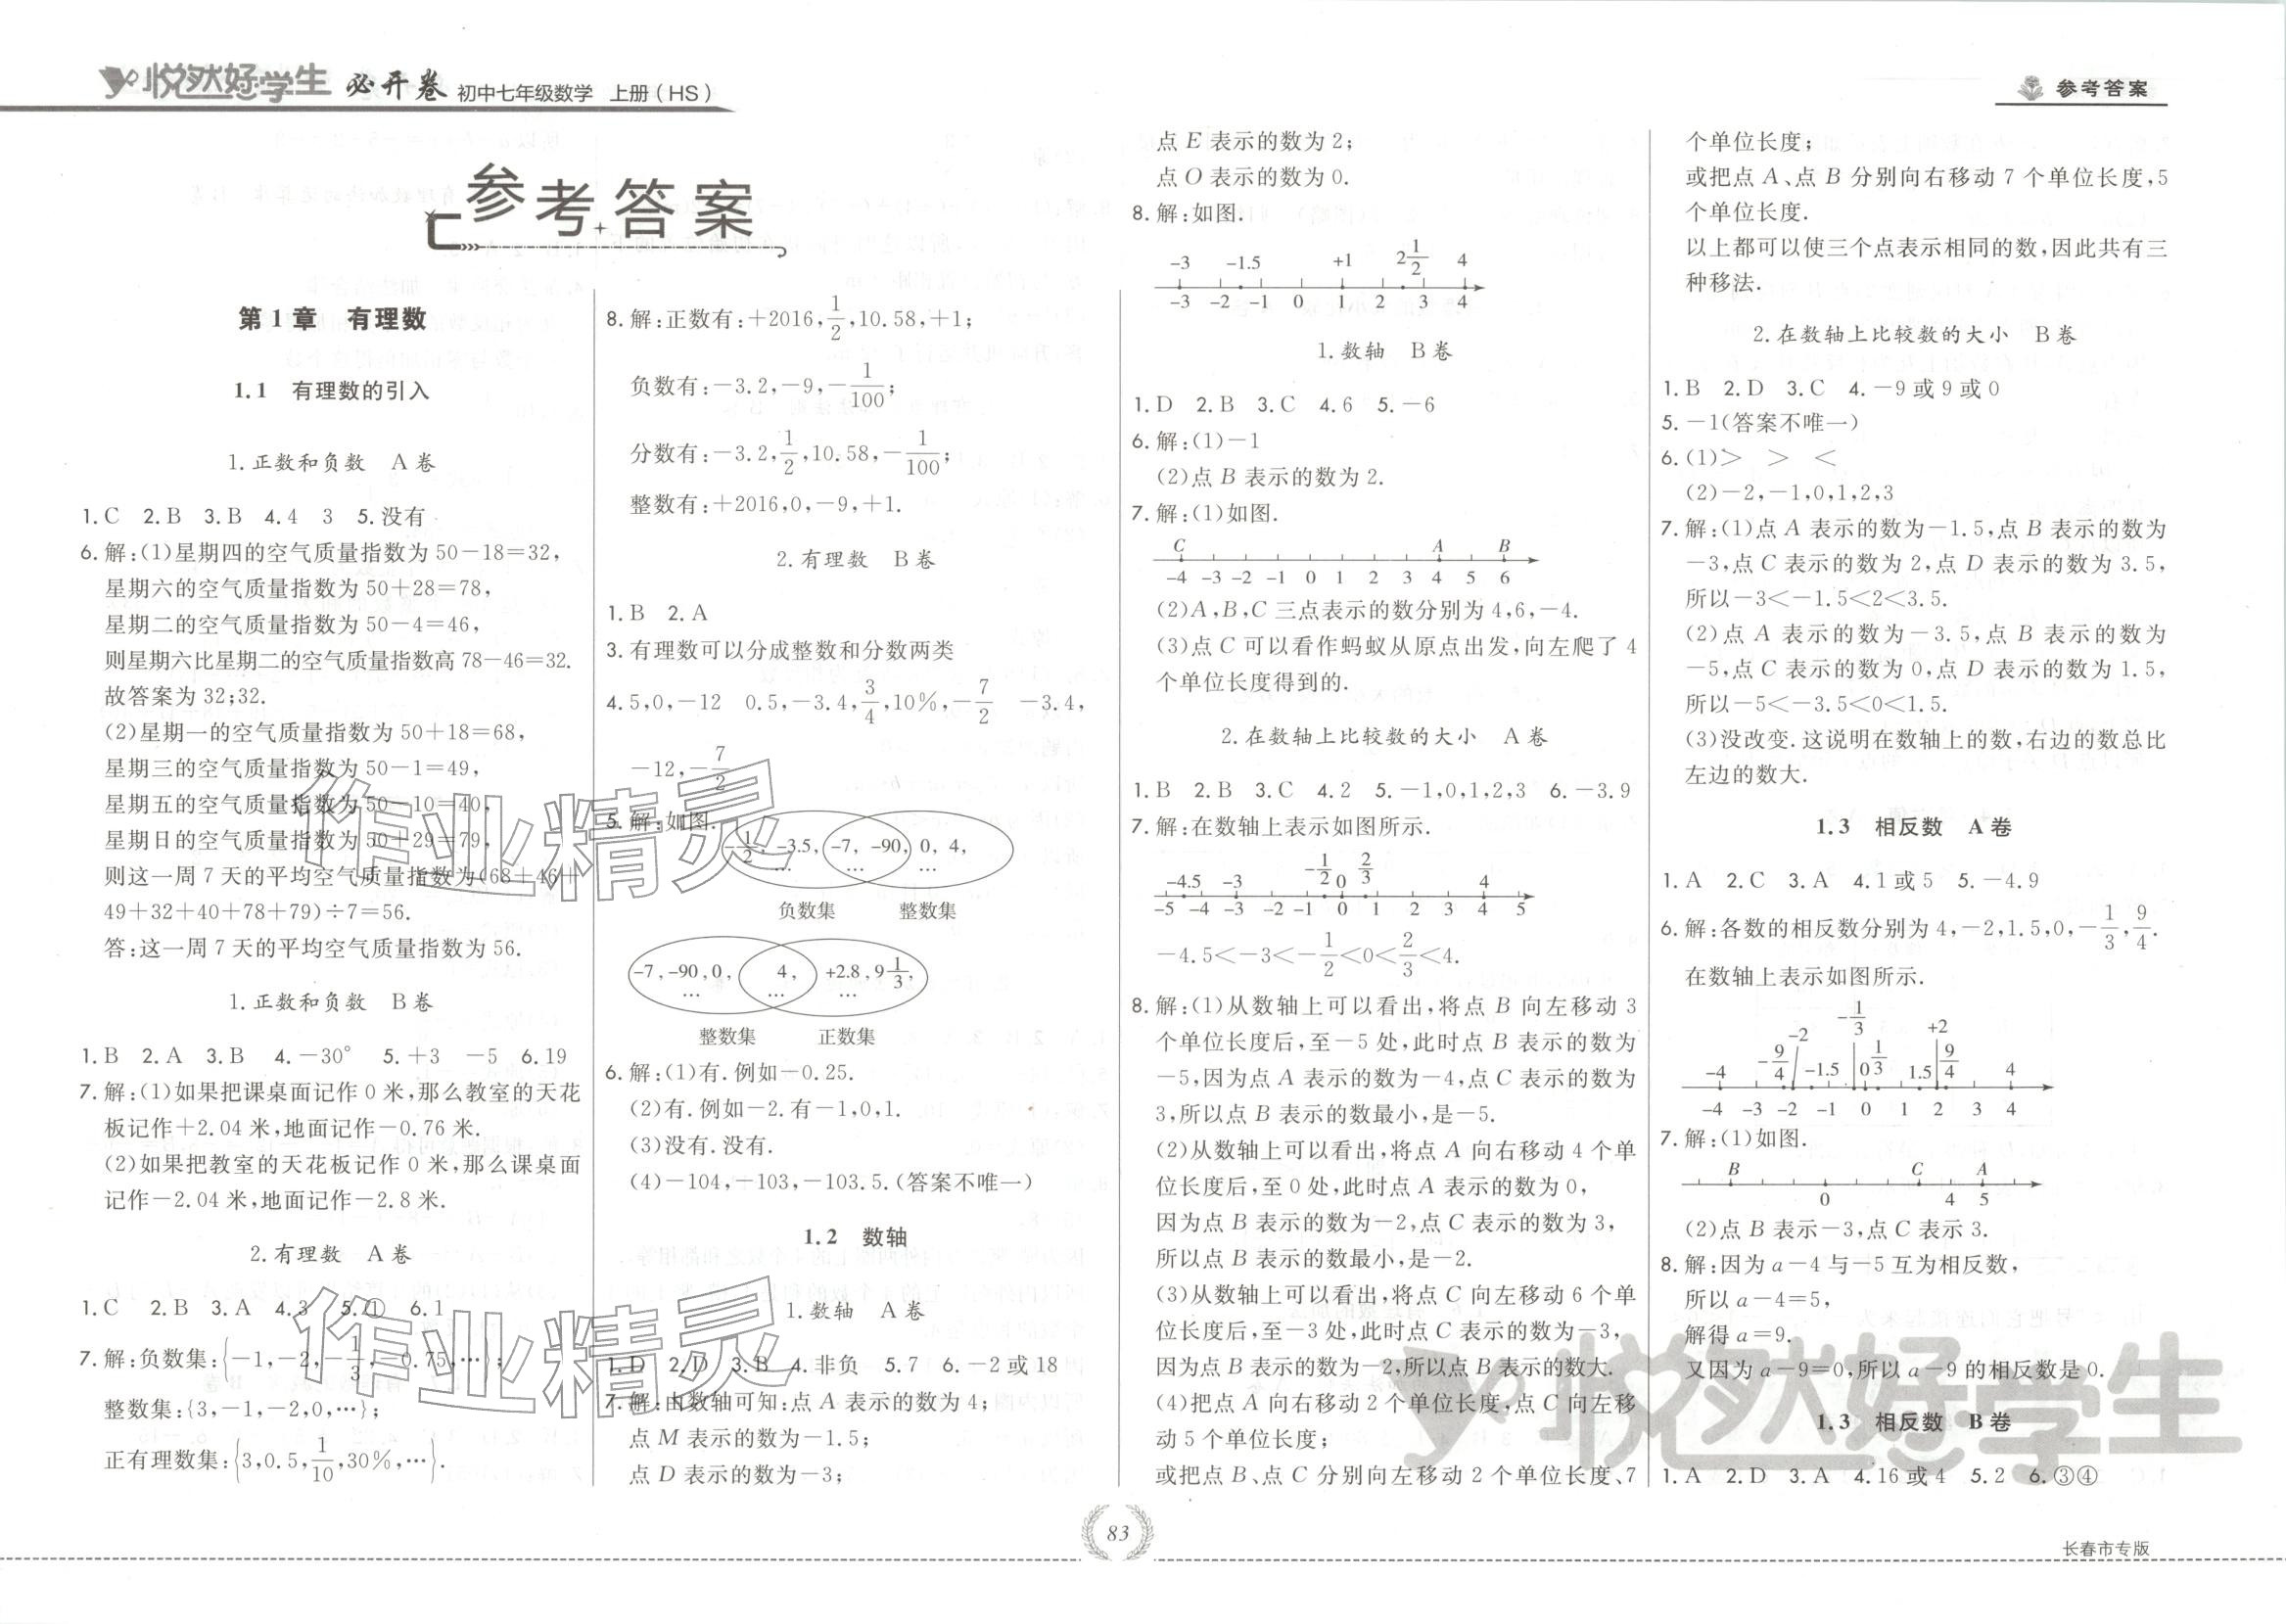 悦然好学生 必开卷 初中七年级数学 上册(HS)
参考答案
参考答案
第1章 有理数
1.1 有理数的引入
1.正数和负数 A卷
1.C 2.B 3.B 4.4 3 5.没有
6.解:(1)星期四的空气质量指数为50－18＝32,
星期六的空气质量指数为50＋28＝78,
星期二的空气质量指数为50－4＝46,
则星期六比星期二的空气质量指数高78－46＝32.
故答案为32;32.
(2)星期一的空气质量指数为50＋18＝68,
星期三的空气质量指数为50－1＝49,
星期五的空气质量指数为50－10＝40,
星期日的空气质量指数为50＋29＝79,
则这一周7天的平均空气质量指数为(68＋46＋
49＋32＋40＋78＋79)÷7＝56.
答:这一周7天的平均空气质量指数为56.
1.正数和负数 B卷
1.B 2.A 3.B 4.－30° 5.＋3 －5 6.19
7.解:(1)如果把课桌面记作0米,那么教室的天花
板记作＋2.04米,地面记作－0.76米.
(2)如果把教室的天花板记作0米,那么课桌面
记作－2.04米,地面记作－2.8米.
2.有理数 A卷
1.C 2.B 3.A 4.3 5.① 6.1
7.解:负数集:{－1,－2,－1/3,－0.75,…};
整数集:{3,－1,－2,0,…};
正有理数集:{3,0.5,1/10,30%,…}.
8.解:正数有:＋2016,1/2,10.58,＋1;
负数有:－3.2,－9,－1/100;
分数有:－3.2,1/2,10.58,－1/100;
整数有:＋2016,0,－9,＋1.
2.有理数 B卷
1.B 2.A
3.有理数可以分成整数和分数两类
4.5,0,－12 0.5,－3.4,3/4,10%,－7/2 －3.4,
－12,－7/2
5.解:如图.
－1/2, -3.5, -7, -90, 0, 4,
… … …
负数集 整数集
-7,-90,0, 4, +2.8,9 1/3,
… … …
整数集 正数集
6.解:(1)有.例如－0.25.
(2)有.例如－2.有－1,0,1.
(3)没有.没有.
(4)－104,－103,－103.5.(答案不唯一)
1.2 数轴
1.数轴 A卷
1.D 2.D 3.B 4.非负 5.7 6.－2或18
7.解:由数轴可知:点A表示的数为4;
点M表示的数为－1.5;
点D表示的数为－3;
点E表示的数为2;
点O表示的数为0.
8.解:如图.
-3 -1.5 +1 2 1/2 4
-3 -2 -1 0 1 2 3 4
1.数轴 B卷
1.D 2.B 3.C 4.6 5.－6
6.解:(1)－1
(2)点B表示的数为2.
7.解:(1)如图.
C A B
-4 -3 -2 -1 0 1 2 3 4 5 6
(2)A,B,C三点表示的数分别为4,6,－4.
(3)点C可以看作蚂蚁从原点出发,向左爬了4
个单位长度得到的.
2.在数轴上比较数的大小 A卷
1.B 2.B 3.C 4.2 5.－1,0,1,2,3 6.－3.9
7.解:在数轴上表示如图所示.
-4.5 -3 -1/2 0 2/3 4
-5 -4 -3 -2 -1 0 1 2 3 4 5
－4.5＜－3＜－1/2＜0＜2/3＜4.
8.解:(1)从数轴上可以看出,将点B向左移动3
个单位长度后,至－5处,此时点B表示的数为
－5,因为点A表示的数为－4,点C表示的数为
3,所以点B表示的数最小,是－5.
(2)从数轴上可以看出,将点A向右移动4个单
位长度后,至0处,此时点A表示的数为0,
因为点B表示的数为－2,点C表示的数为3,
所以点B表示的数最小,是－2.
(3)从数轴上可以看出,将点C向左移动6个单
位长度后,至－3处,此时点C表示的数为－3,
因为点B表示的数为－2,所以点B表示的数大.
(4)把点A向右移动2个单位长度,点C向左移
动5个单位长度;
或把点B、点C分别向左移动2个单位长度、7
个单位长度;
或把点A、点B分别向右移动7个单位长度,5
个单位长度.
以上都可以使三个点表示相同的数,因此共有三
种移法.
2.在数轴上比较数的大小 B卷
1.B 2.D 3.C 4.－9或9或0
5.－1(答案不唯一)
6.(1)＞ ＞ ＜
(2)－2,－1,0,1,2,3
7.解:(1)点A表示的数为－1.5,点B表示的数为
－3,点C表示的数为2,点D表示的数为3.5,
所以－3＜－1.5＜2＜3.5.
(2)点A表示的数为－3.5,点B表示的数为
－5,点C表示的数为0,点D表示的数为1.5,
所以－5＜－3.5＜0＜1.5.
(3)没改变.这说明在数轴上的数,右边的数总比
左边的数大.
1.3 相反数 A卷
1.A 2.C 3.A 4.1或5 5.－4.9
6.解:各数的相反数分别为4,－2,1.5,0,－1/3,9/4.
在数轴上表示如图所示.
-4 -9/4 -2 -1.5 -1/3 0 1/3 1.5 +2 9/4 4
-4 -3 -2 -1 0 1 2 3 4
7.解:(1)如图.
B C A
0 4 5
(2)点B表示－3,点C表示3.
8.解:因为a－4与－5互为相反数,
所以a－4＝5,
解得a＝9.
又因为a－9＝0,所以a－9的相反数是0.
1.3 相反数 B卷
1.A 2.D 3.A 4.16或4 5.2 6.③④
作业精灵
作业精灵
悦然好学生
83
长春市专版